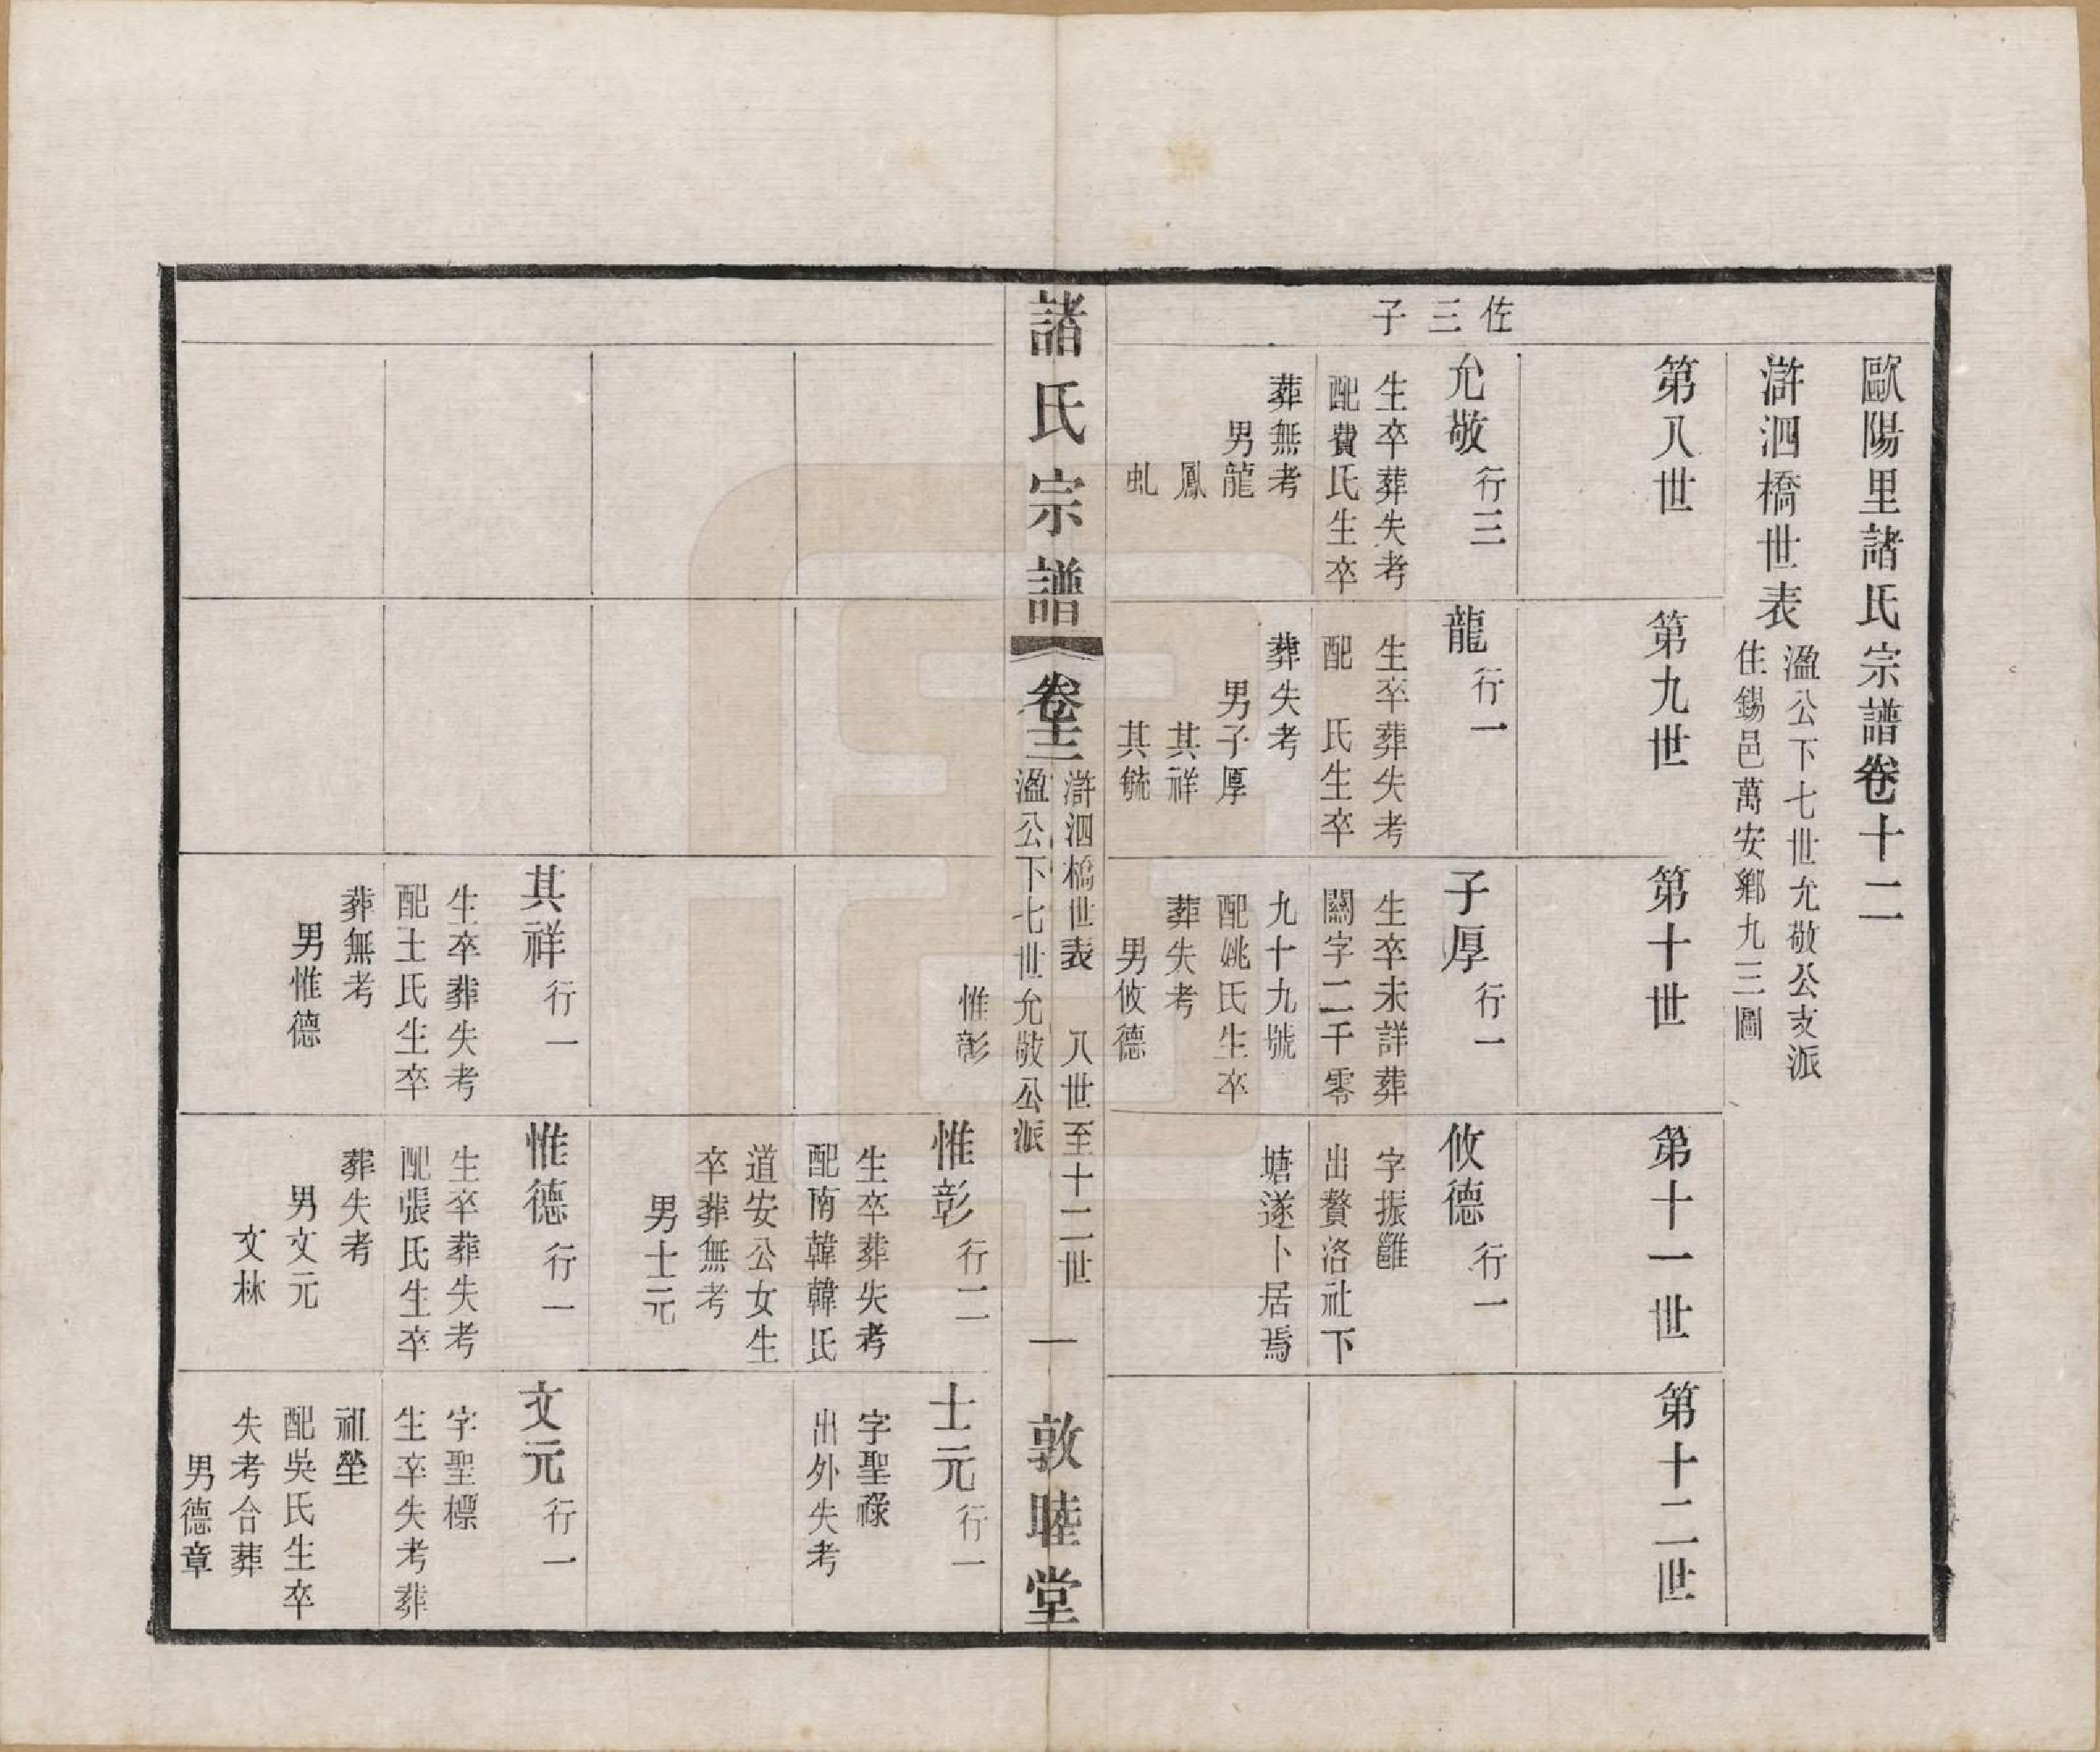 歐陽里諸氏宗譜卷十二
滸泗橋世表
溋公下七世允敬公支派
住錫邑萬安鄉九三圖
第八世
第九世
第十世
第十一世
第十二世
佐三子
允敬 行三
生卒葬失考
配費氏生卒
葬無考
男龍
鳳
虬
龍 行一
生卒葬失考
配 氏生卒
葬失考
男子厚
其祥
其毓
子厚 行一
生卒未詳葬
關字二千零
九十九號
配姚氏生卒
葬失考
男攸德
惟彰
攸德 行一
字振雝
出贅洛社下
塘遂卜居焉
諸氏宗譜
卷十二
滸泗橋世表 八世至十二世
溋公下七世允敬公派
一
敦睦堂
惟彰 行二
生卒葬失考
配南韓韓氏
道安公女生
卒葬無考
男士元
士元 行一
字聖祿
出外失考
其祥 行一
生卒葬失考
配王氏生卒
葬無考
男惟德
惟德 行一
生卒葬失考
配張氏生卒
葬失考
男文元
文林
文元 行一
字聖標
生卒失考葬
祖塋
配吳氏生卒
失考合葬
男德章